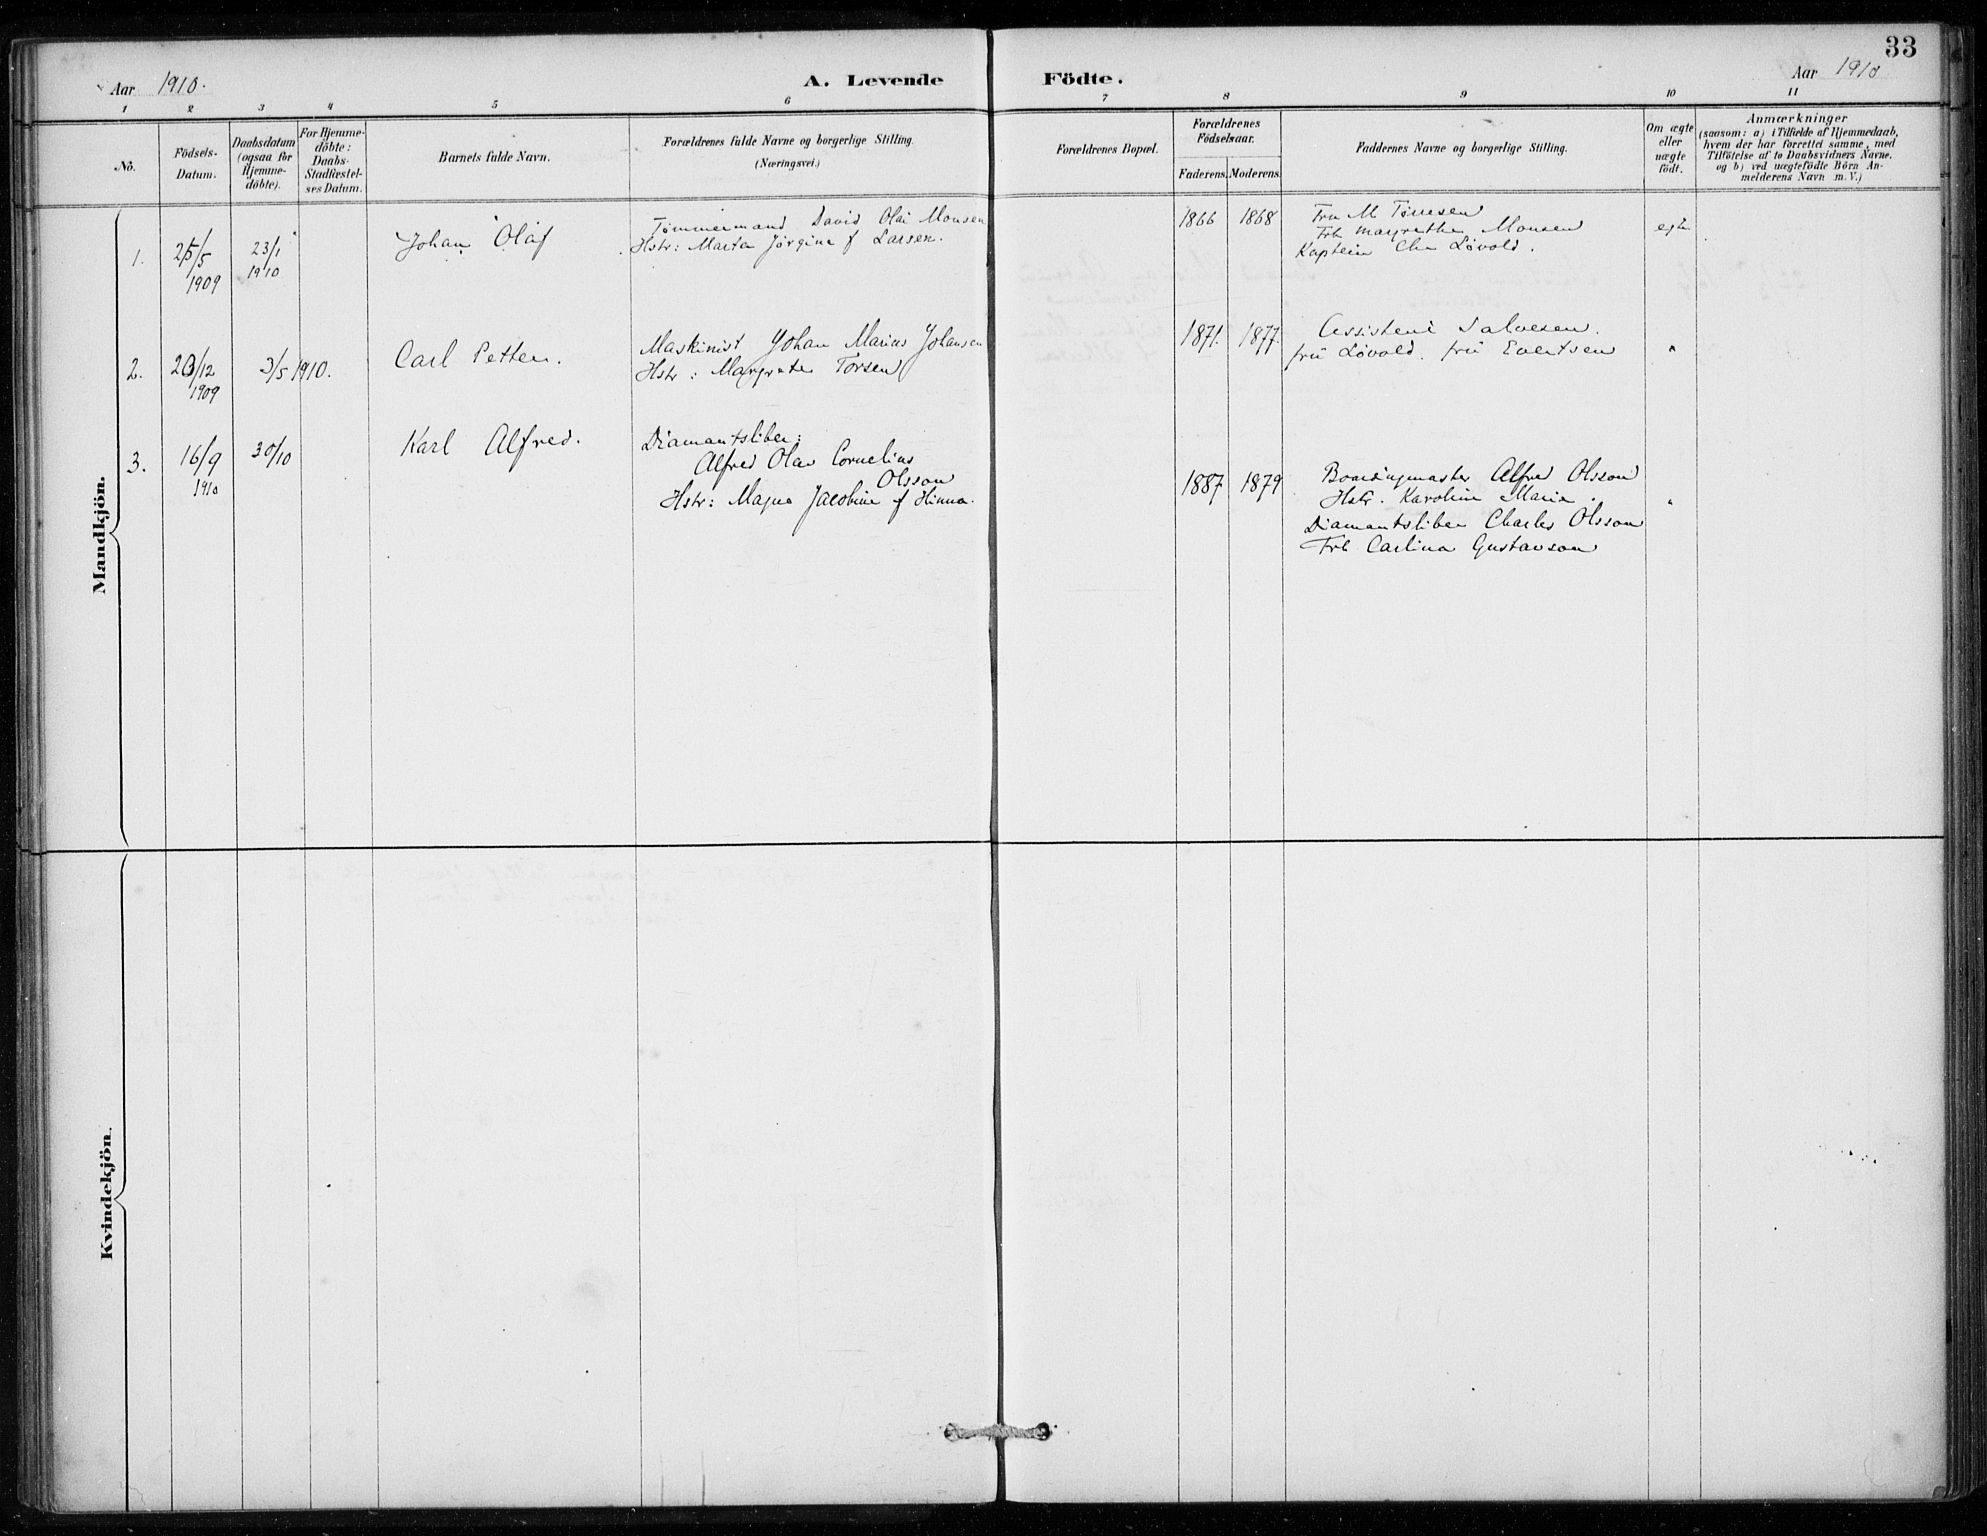 33
Aar 1910.
A. Levende Födte.
Aar 1910
1 2 3 4 5 6 7 8 9 10 11
No.
Födsels-
Datum.
Daabsdatum
(ogsaa for
Hjemme-
döbte).
For Hjemme-
döbte:
Daabs-
Stadfæstel-
ses Datum.
Barnets fulde Navn.
Forældrenes fulde Navne og borgerlige Stilling.
(Næringsvei.)
Forældrenes Bopæl.
Forældrenes
Födselsaar.
Faderens. Moderens.
Faddernes Navne og borgerlige Stilling.
Om ægte
eller
uægte
födt.
Anmærkninger
(saasom: a) i Tilfælde af Hjemmedaab,
hvem der har forrettet samme, med
Tilföielse af to Daabsvidners Navne,
og b) ved uægtefödte Börn An-
melderens Navn m.V.)
Mandkjön.
1.
25/5
1909
23/1
1910
Johan Olaf
Tømmermand David Olai Monsen
Hstr: Marta Jørgine f Larsen.
1866 1868
Fru M Tørresen
Frk Margrethe Monsen
Kaptein Chr Løvold.
egte
2.
20/12
1909
3/5 1910.
Carl Petter.
Maskinist Johan Marius Johansen
Hstr: Margrete Torsen
1871. 1877.
Assistent Salvesen.
fru Løvold. fru Evertsen
"
3.
16/9
1910
30/10
Karl Alfred.
Diamantsliber:
Alfred Olav Cornelius
Olsson
Hstr: Magna Jacobine f Hinna.
1887 1879
Boardingmaster Alfred Olsson
Hstr. Karoline Marie.
Diamantsliber Charles Olsson
Frk Carlina Gustavson
"
Kvindekjön.